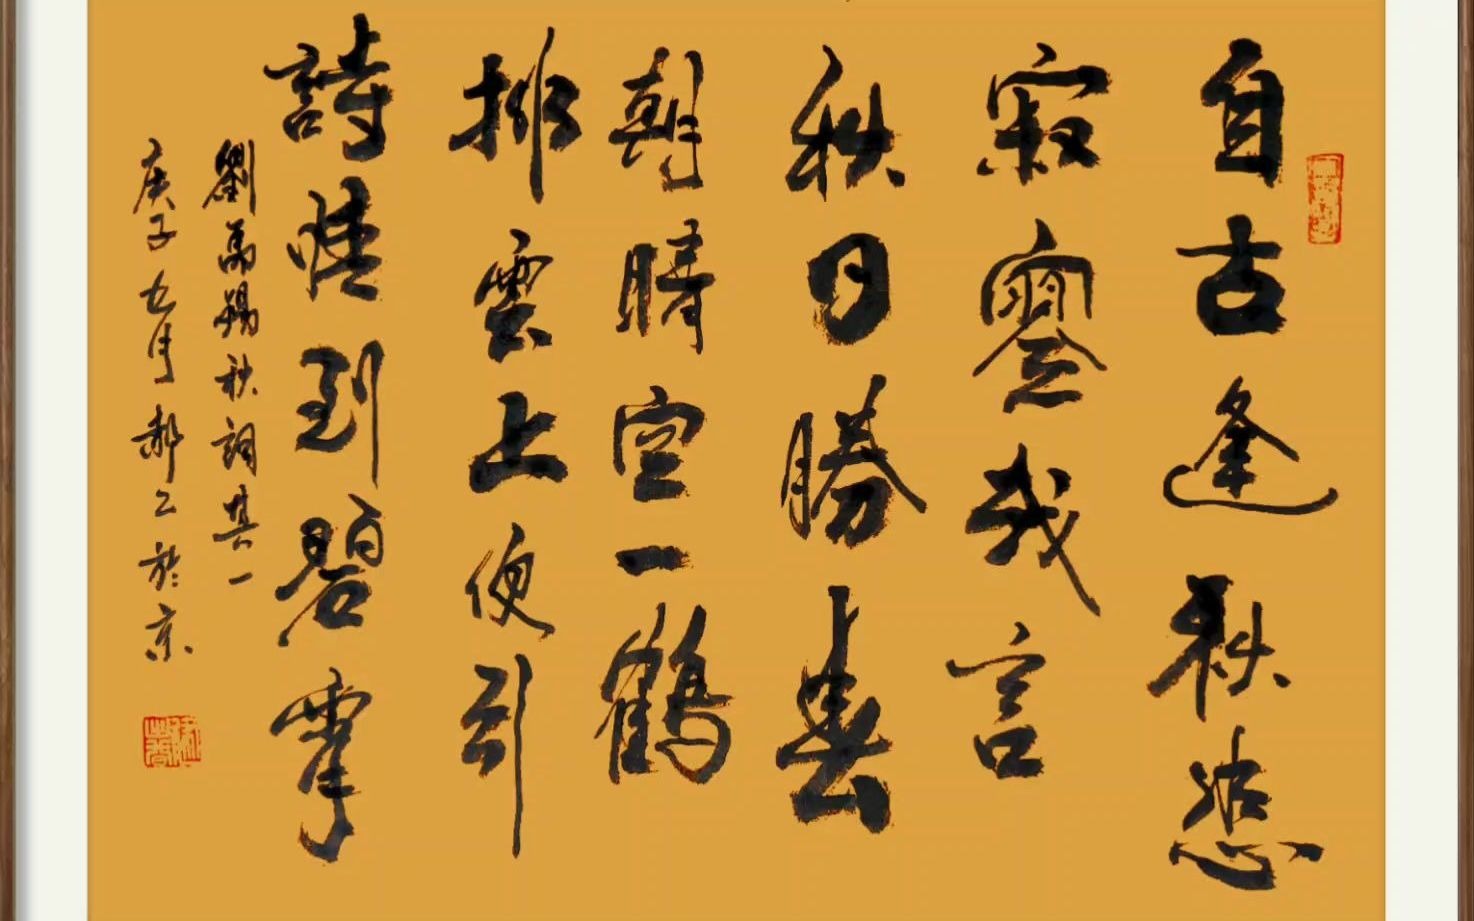 自古逢秋悲
寂寥我言
秋日勝春
朝晴空一鶴
排雲上便引
詩情到碧霄
劉禹錫秋詞其一
庚子九月郝於京